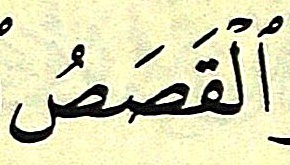 ٱلْقَصَصُ